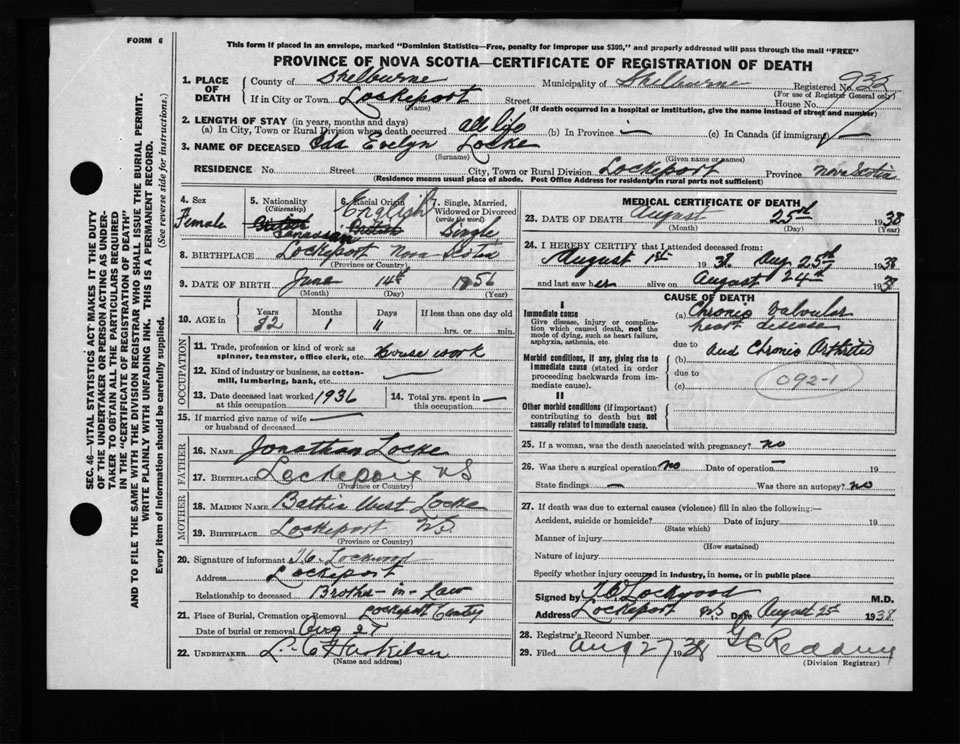 FORM 6
This form if placed in an envelope, marked "Dominion Statistics—Free, penalty for improper use $300," and properly addressed will pass through the mail "FREE"
PROVINCE OF NOVA SCOTIA—CERTIFICATE OF REGISTRATION OF DEATH
1. PLACE OF DEATH
County of Shelburne Municipality of Shelburne Registered No. 935
(For use of Registrar General only)
If in City or Town Lockeport Street House No.
(Name) (If death occurred in a hospital or institution, give the name instead of street and number)
2. LENGTH OF STAY (in years, months and days)
(a) In City, Town or Rural Division where death occurred all life (b) In Province — (c) In Canada (if immigrant) —
3. NAME OF DECEASED Eda Evelyn Locke
(Surname) (Given name or names)
RESIDENCE No. Street City, Town or Rural Division Lockeport Province Nova Scotia
(Residence means usual place of abode. Post Office Address for residents in rural parts not sufficient)
4. Sex Female
5. Nationality (Citizenship) British Canadian
6. Racial Origin English British
7. Single, Married, Widowed or Divorced (write the word) Single
8. BIRTHPLACE Lockeport Nova Scotia
(Province or Country)
9. DATE OF BIRTH June 14th 1856
(Month) (Day) (Year)
10. AGE in Years 82 Months 1 Days " If less than one day old hrs. or min.
OCCUPATION
11. Trade, profession or kind of work as spinner, teamster, office clerk, etc. House work
12. Kind of industry or business, as cotton-mill, lumbering, bank, etc. —
13. Date deceased last worked at this occupation 1936
14. Total yrs. spent in this occupation —
15. If married give name of wife or husband of deceased —
FATHER
16. NAME Jonathan Locke
17. BIRTHPLACE Lockeport NS
(Province or Country)
MOTHER
18. MAIDEN NAME Bathia West Locke
19. BIRTHPLACE Lockeport NS
(Province or Country)
20. Signature of informant Lockwood
Address Lockeport
Relationship to deceased Brother-in-Law
21. Place of Burial, Cremation or Removal Lockeport Cemetery
Date of burial or removal Aug 27
22. UNDERTAKER L. C Huskilson
(Name and address)
MEDICAL CERTIFICATE OF DEATH
23. DATE OF DEATH August 25th 1938
(Month) (Day) (Year)
24. I HEREBY CERTIFY that I attended deceased from:
August 1st 1938 Aug 25th 1938
and last saw her alive on August 24th 193
CAUSE OF DEATH
I
Immediate cause
Give disease, injury or complication which caused death, not the mode of dying, such as heart failure, asphyxia, asthenia, etc.
(a) Chronic Valvular heart disease
due to
Morbid conditions, if any, giving rise to immediate cause (stated in order proceeding backwards from immediate cause).
(b) and Chronic Arthritis
due to
(c)
092-1
II
Other morbid conditions (if important) contributing to death but not causally related to immediate cause.
25. If a woman, was the death associated with pregnancy? no
26. Was there a surgical operation? no Date of operation — 19
State findings — Was there an autopsy? no
27. If death was due to external causes (violence) fill in also the following:—
Accident, suicide or homicide? Date of injury 19
(State which)
Manner of injury
(How sustained)
Nature of injury
Specify whether injury occurred in industry, in home, or in public place
Signed by Lockwood M.D.
Address Lockeport NS Date August 25th 1938
28. Registrar's Record Number
29. Filed Aug 27 1938
(Division Registrar)
SEC. 46—VITAL STATISTICS ACT MAKES IT THE DUTY OF THE UNDERTAKER OR PERSON ACTING AS UNDERTAKER TO OBTAIN ALL THE PARTICULARS REQUIRED IN THE "CERTIFICATE OF REGISTRATION OF DEATH" AND TO FILE THE SAME WITH THE DIVISION REGISTRAR WHO SHALL ISSUE THE BURIAL PERMIT.
WRITE PLAINLY WITH UNFADING INK. THIS IS A PERMANENT RECORD.
Every item of information should be carefully supplied. (See reverse side for instructions.)